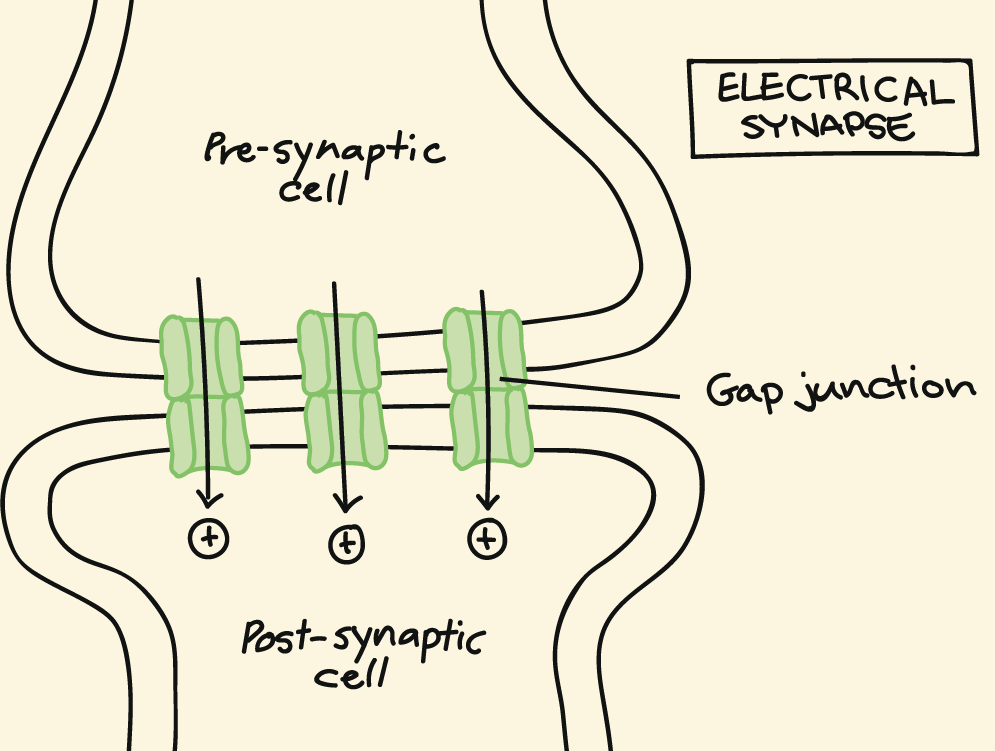 ELECTRICAL
SYNAPSE
Pre-synaptic
cell
Gap junction
+
+
+
Post-synaptic
cell